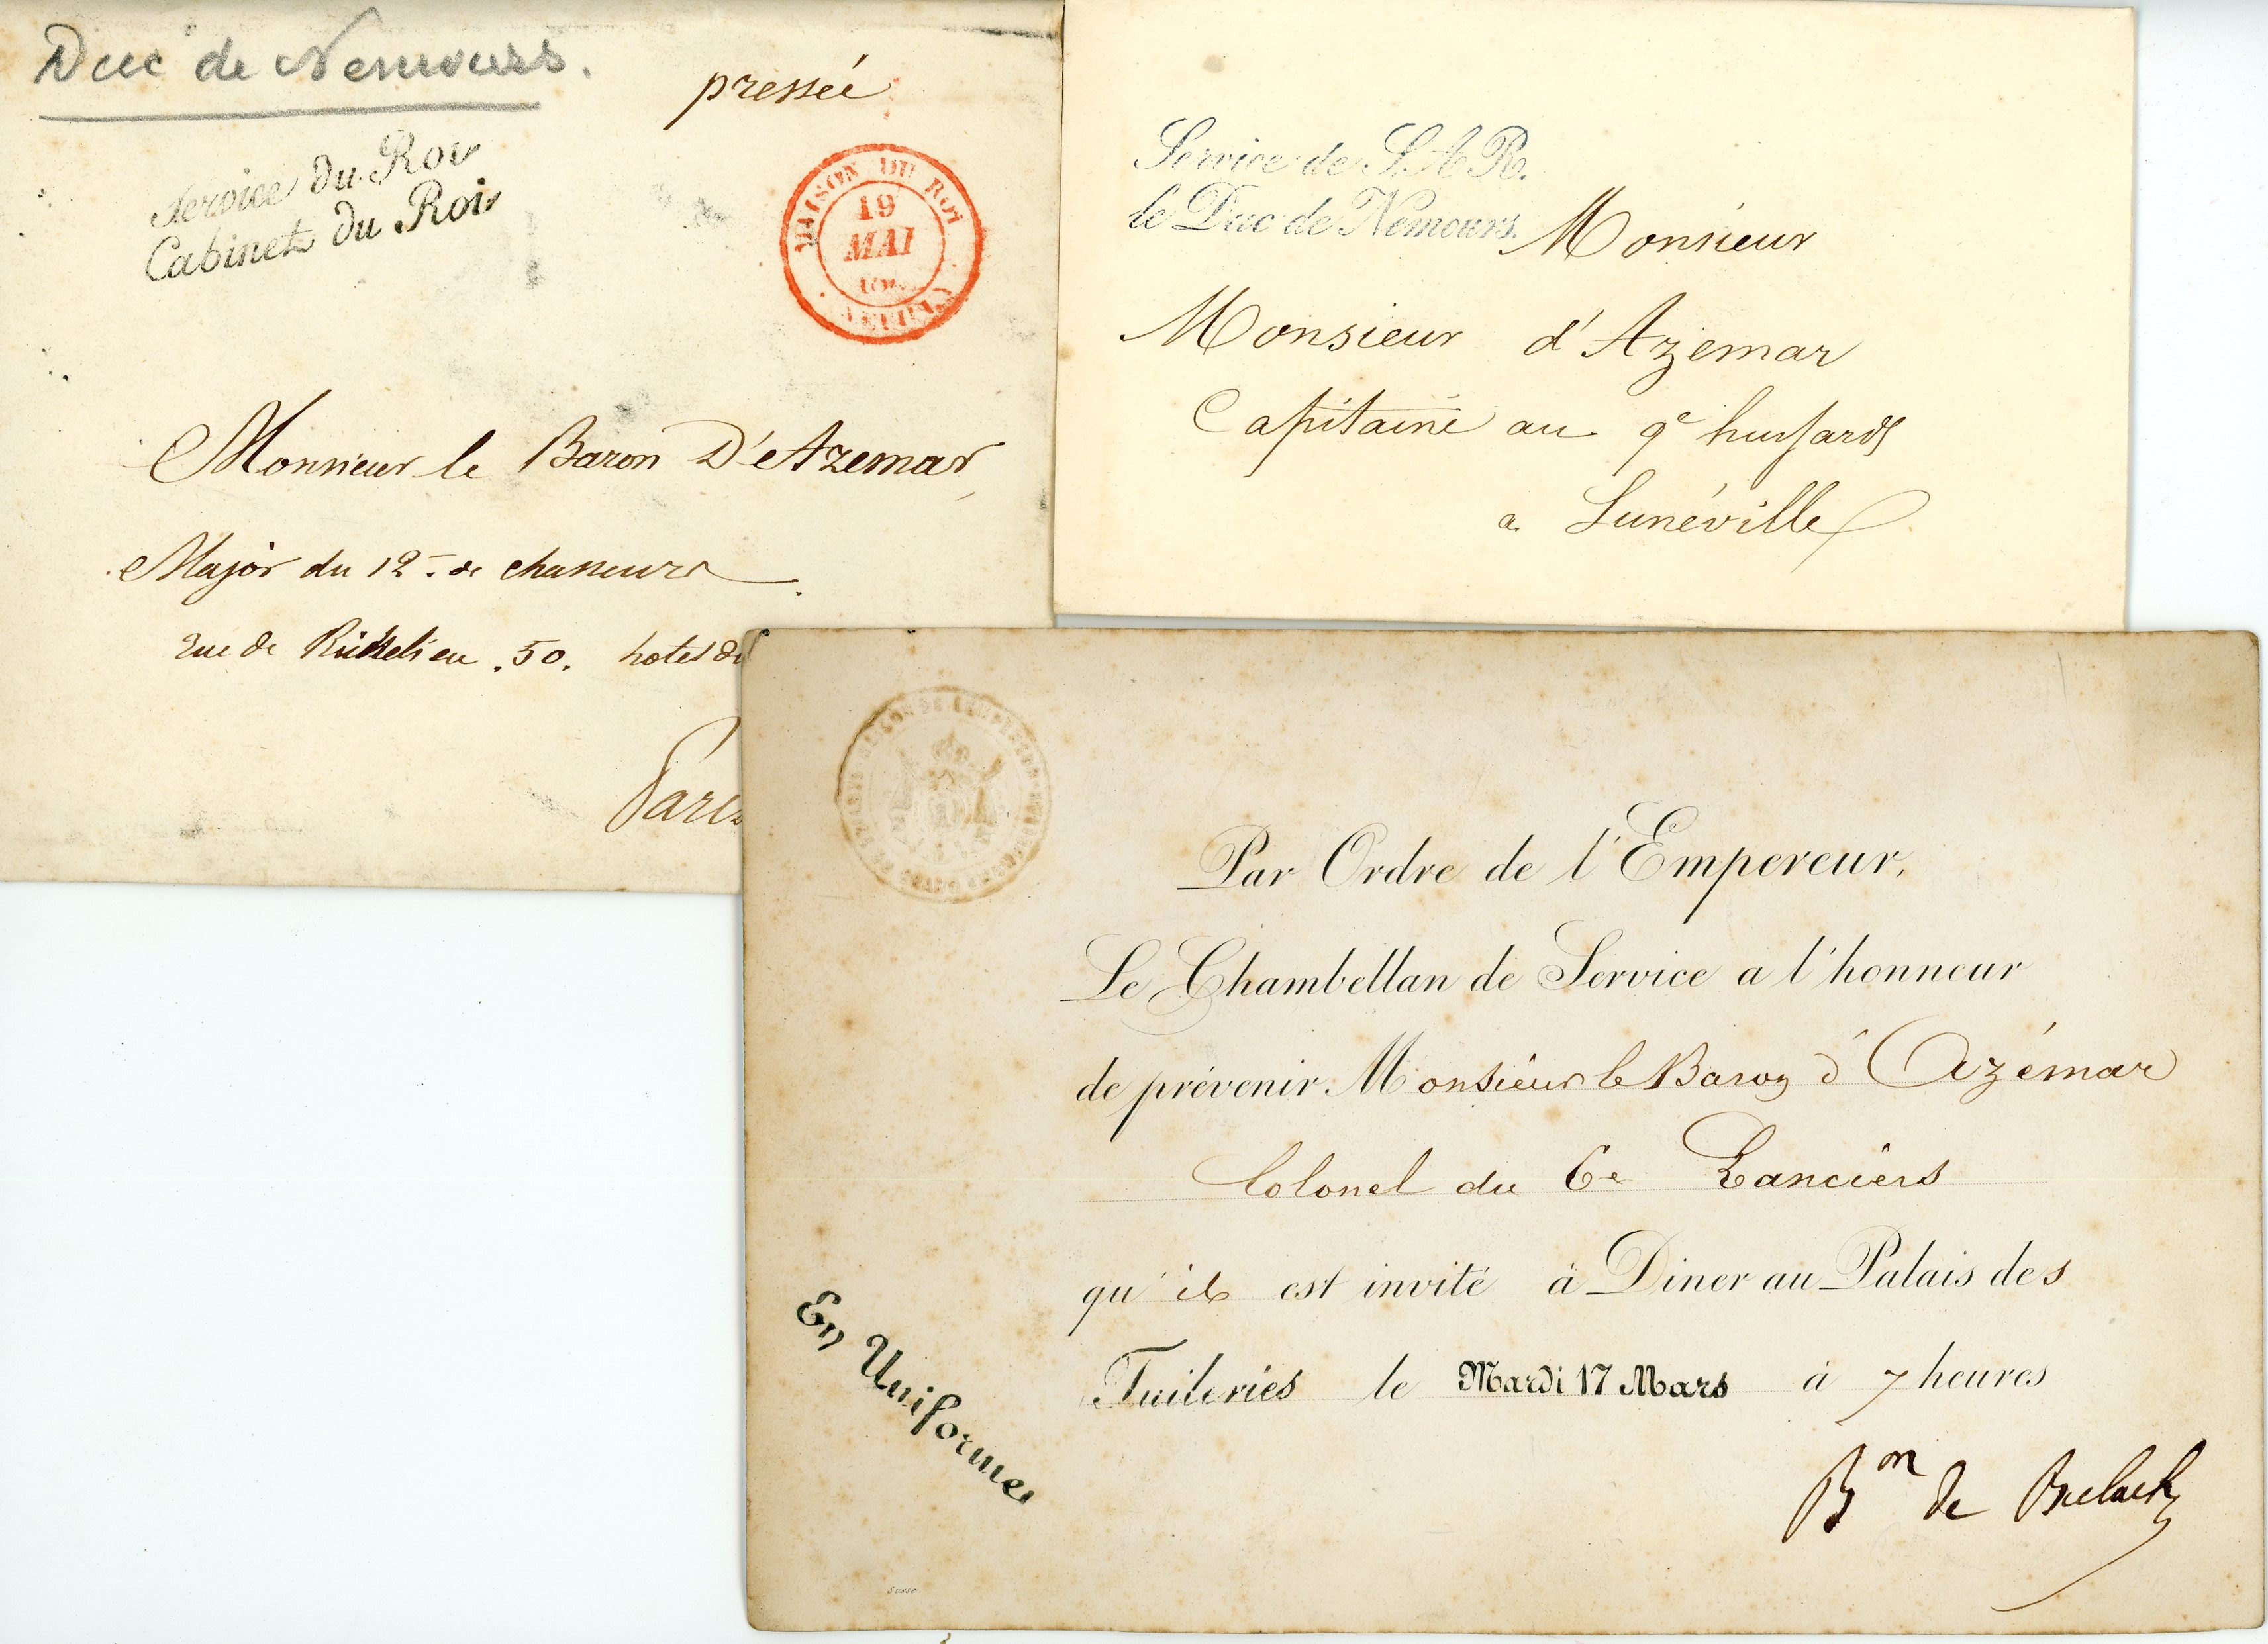 Duc de Nemours.
pressée
Service du Roi
Cabinet du Roi
MAISON DU ROI
19
MAI
Monsieur le Baron D'Azemar,
Major du 12e de chasseurs
rue de Richelieu . 50 . hotel du
Paris
Service de S.A.R.
le Duc de Nemours.
Monsieur
Monsieur d'Azemar
Capitaine au 9e hussards
a Lunéville
Par Ordre de l'Empereur,
Le Chambellan de Service a l'honneur
de prévenir Monsieur le Baron d'Azémar
Colonel du 6e Lanciers
qu'il est invité à Diner au Palais des
Tuileries le Mardi 17 Mars à 7 heures
En Uniforme
Bon de